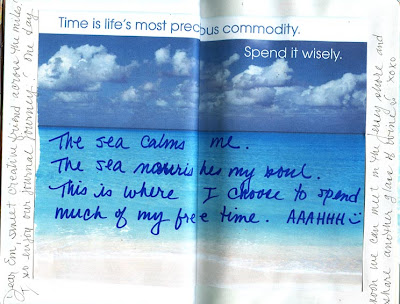 Time is life's most precious commodity.
Spend it wisely.
The sea calms me.
The sea nourishes my soul.
This is where I choose to spend
much of my free time. AAAHHH
Dear Em, sweet creative friend across the miles!
I so enjoy our journal journey! One day
soon we can meet the Jersey shore and
share another glass of xoxo